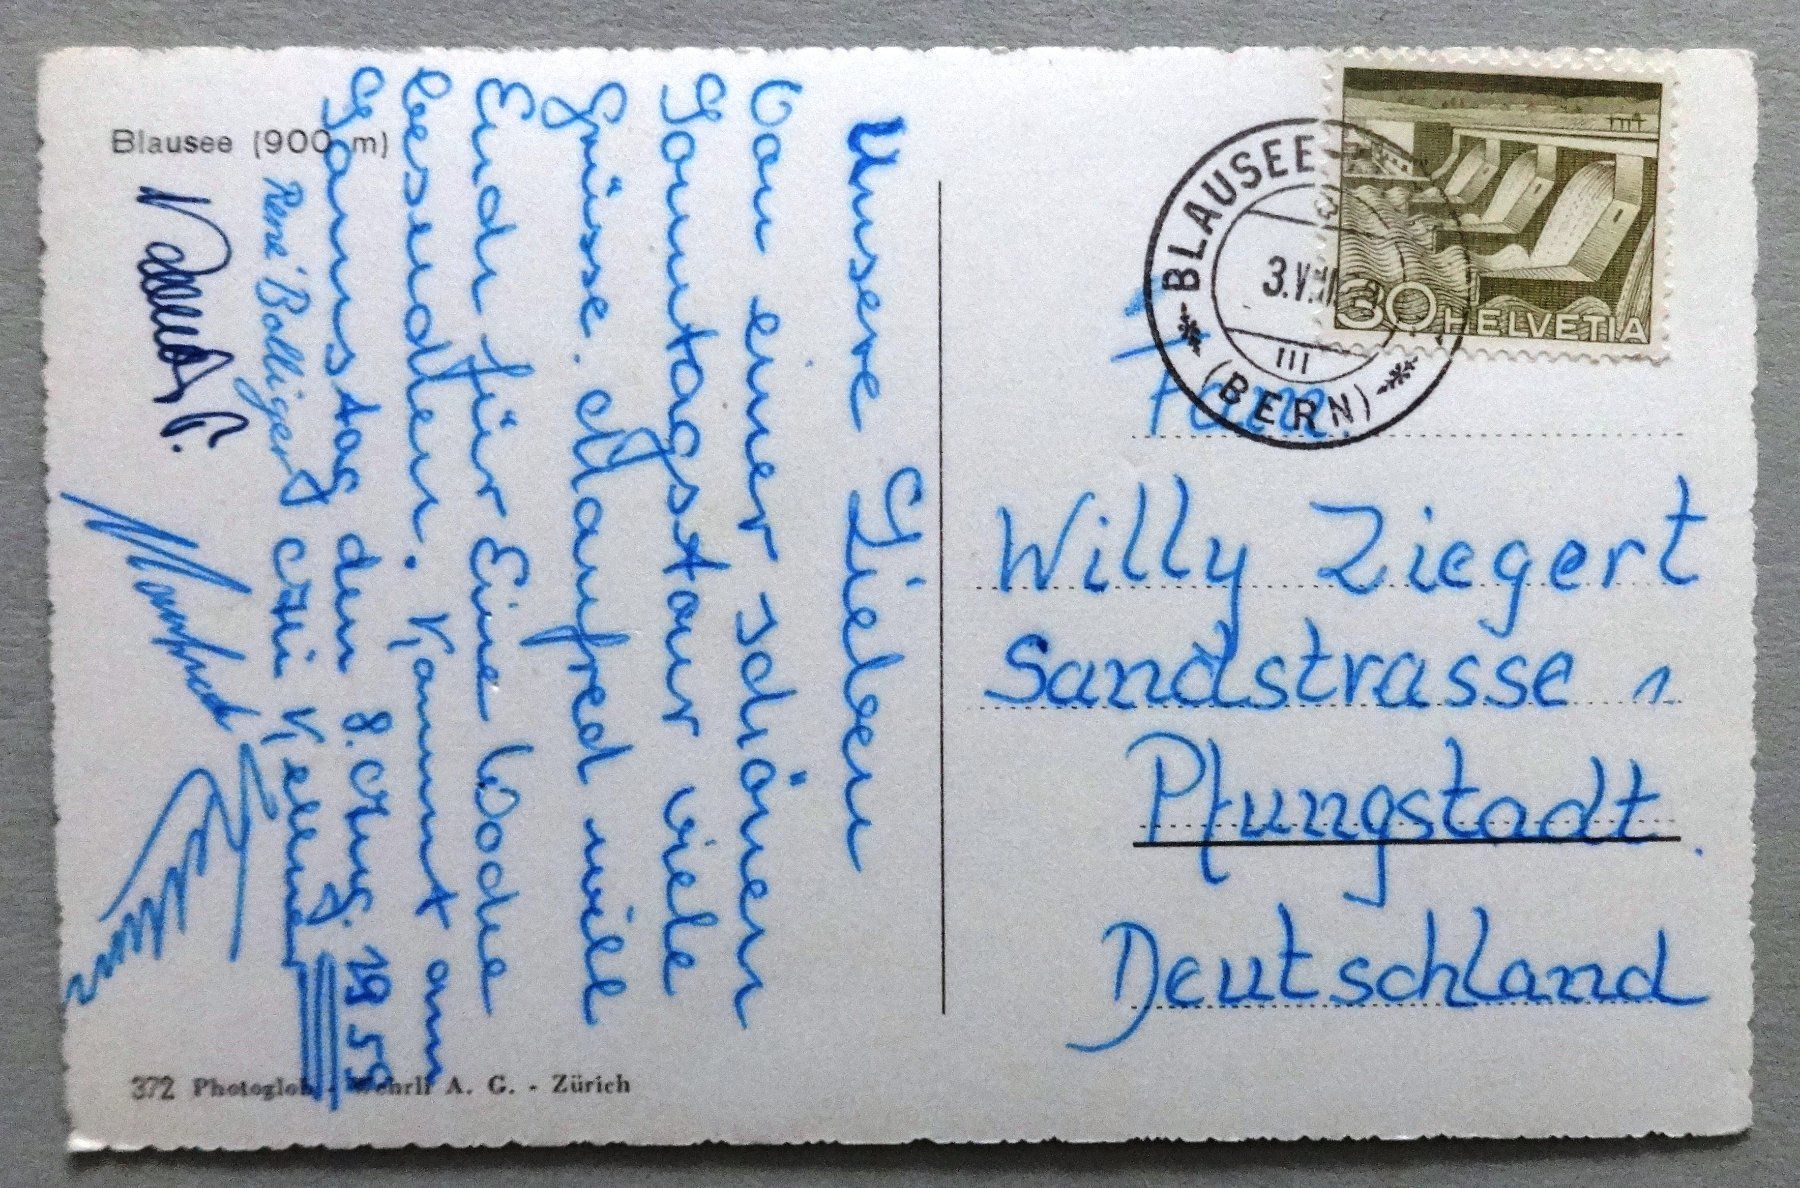 Blausee (900 m)
Unsere Lieben
Von einer schönen
Sonntagstour viele
Grüsse. Manfred will
Euch für Eine Woche
besuchen. Kommt am
Samstag den 8. Aug. 1959
René Bolliger
Manfred
372 Photoglob - Wehrli A. G. - Zürich
BLAUSEE
(BERN)
3.VIII
III
30 HELVETIA
Fam.
Willy Ziegert
Sandstrasse 1
Pfungstadt.
Deutschland